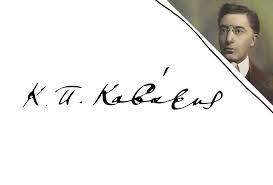 Κ. Π. Καβάφης